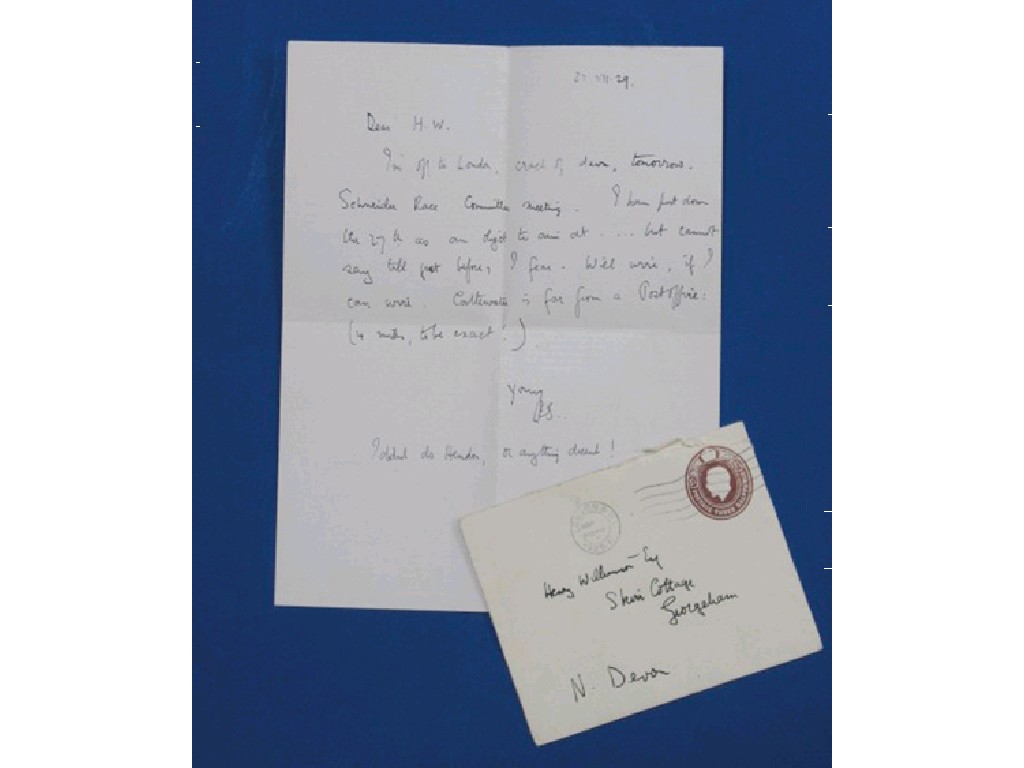 27.VII.29.
Dear H.W.
I'm off to London, crack of dawn, tomorrow.
Schneider Race Committee meeting. I have put down
the 27th as an object to aim at .... but cannot
say till just before, I fear. Will wire, if I
can wire. Cattewater is far from a Post Office:
(4 miles, to be exact!).
Yours
I didn't do Hendon, or anything decent!
Henry Williamson Esq
Skirr Cottage
Georgeham
N. Devon